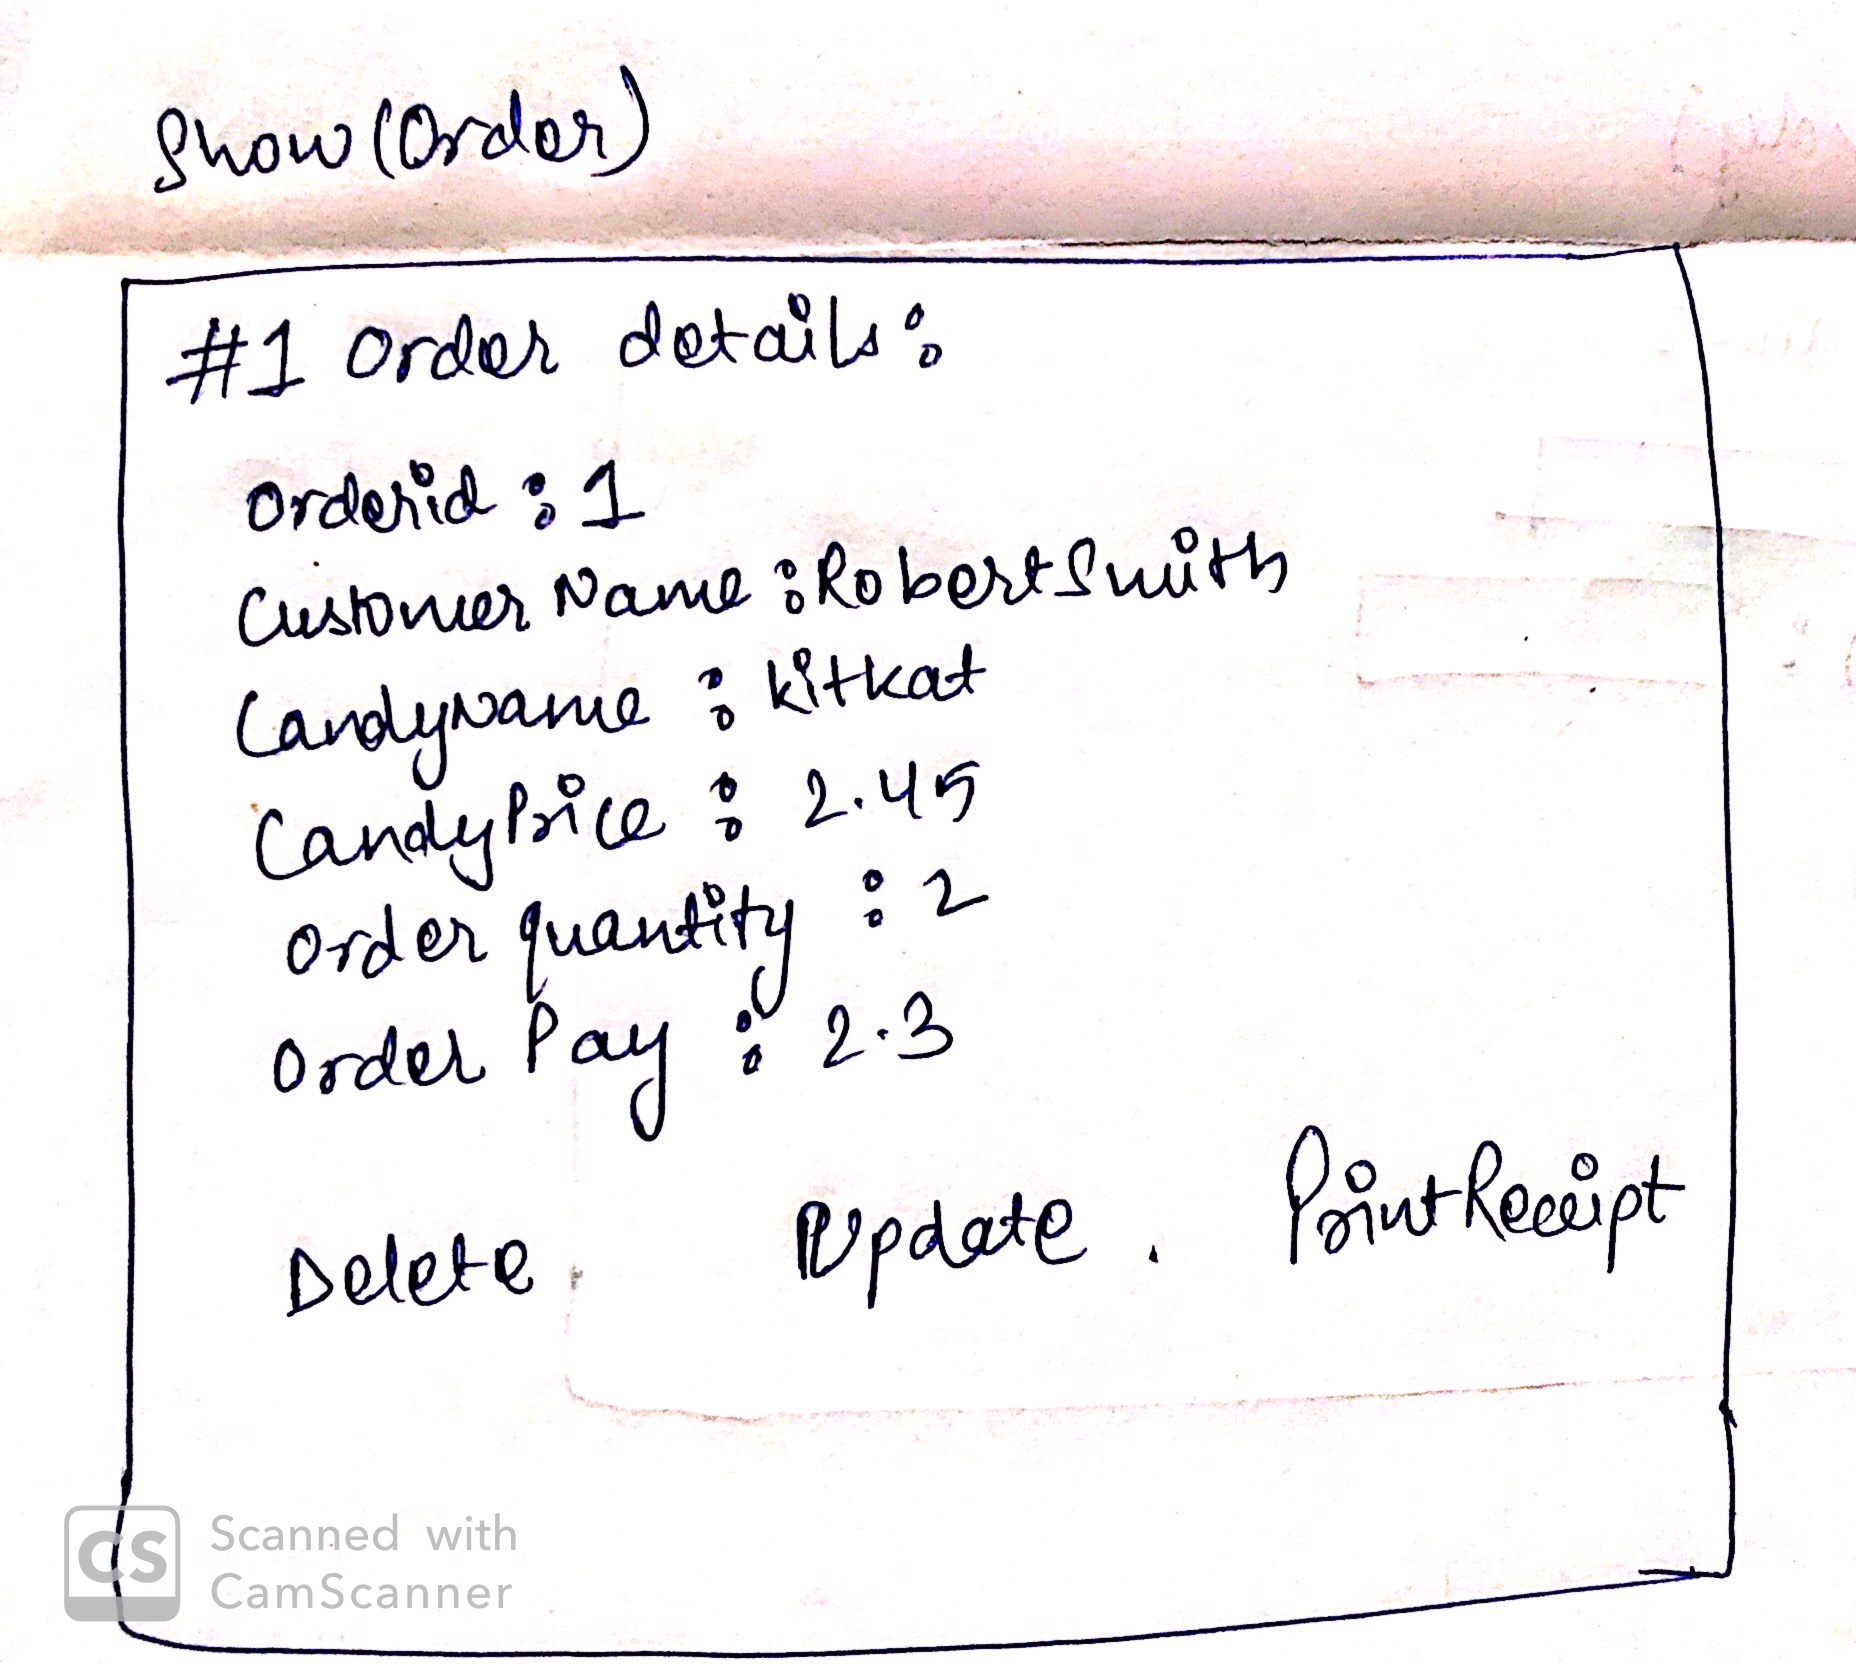 Show (Order)
#1 Order details:
Orderid : 1
Customer Name : Robert Smith
CandyName : kitkat
CandyPrice : 2.45
Order quantity : 2
Order Pay : 2.3
Delete Update . Print Receipt
CS Scanned with
CamScanner